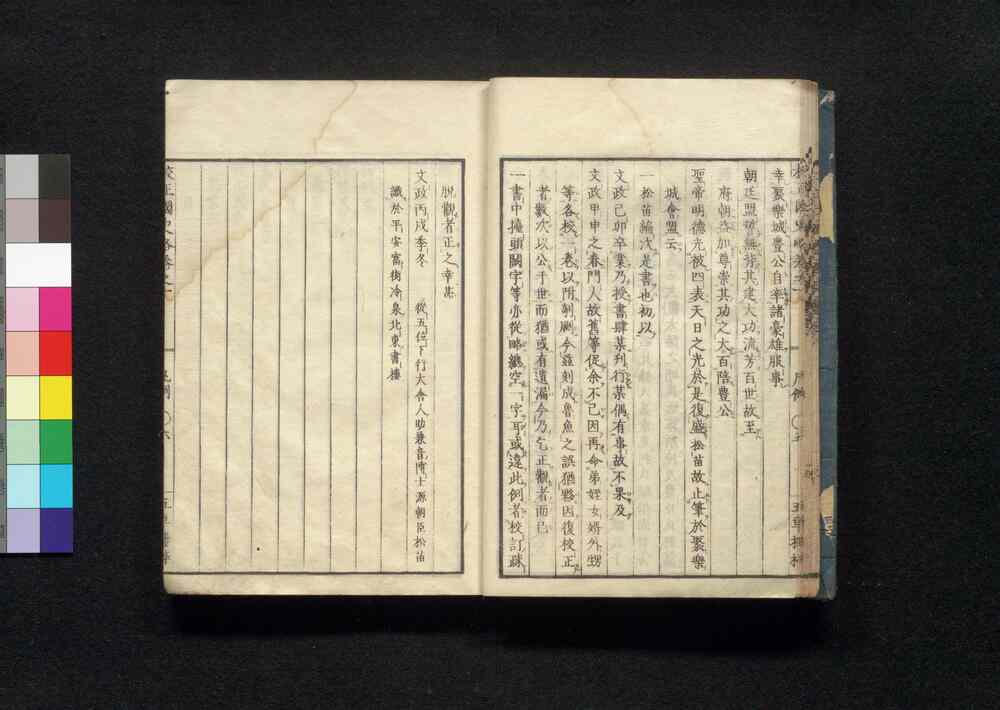 幸聚樂城豊公自率諸豪雄服事
朝廷盟功無芽其建大功流芳百世故至
府朝亦加尊崇其功之大百陪豊公
聖帝明德光被四表天日之光於是復盛松苗故止筆於聚樂
城會盟云
一松苗編次是書也初以
文政己卯卒業乃授書肆某刊行某偶有事故不果及
文政甲申之春門人故舊等促余不已因再命弟姪女婿外甥
等各校一卷以附剞劂今茲刻成魯魚之誤猶夥因復校正
者數次以公于世而猶或有遺漏今乃乞正觀者而已
一書中擡頭闕字等亦從略纔空一字耳或違此例者校訂疎
脱觀者正之幸甚
文政丙戌季冬 從五位下行大舎人助兼音博士源朝臣松苗
識於平安富街冷泉北東書樓